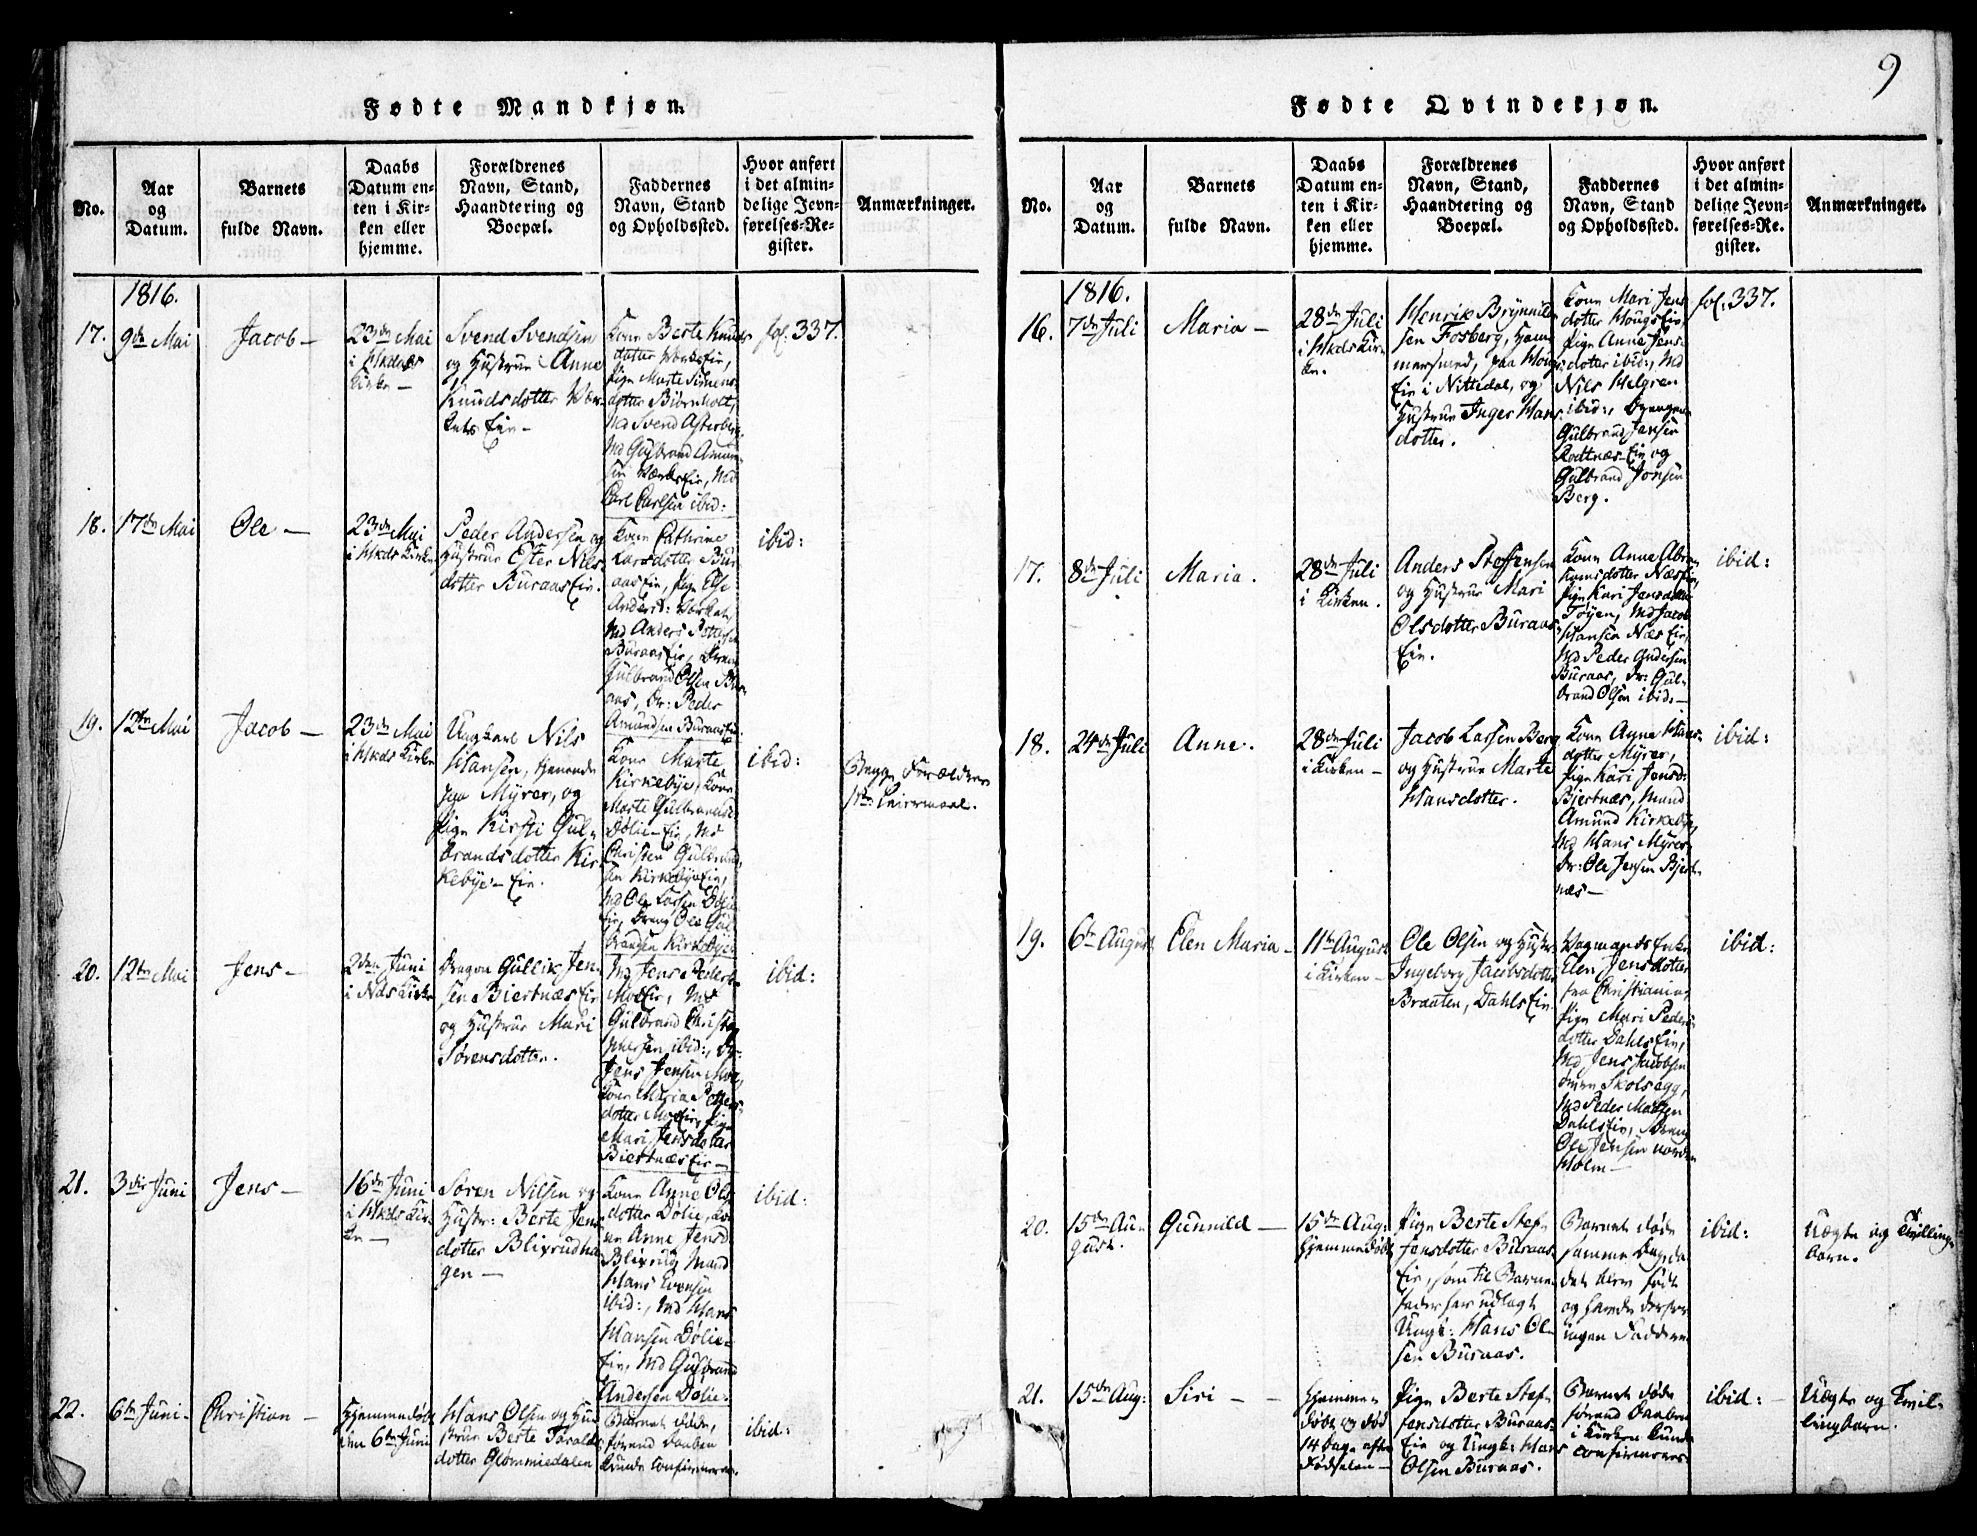 9
Fødte Mandkjøn.
No.
Aar
og
Datum.
Barnets
fulde Navn.
Daabs
Datum en-
ten i Kir-
ken eller
hjemme.
Forældrenes
Navn, Stand,
Haandtering og
Boepæl.
Faddernes
Navn, Stand
og Opholdssted.
Hvor anført
i det almin-
delige Jevn-
førelses-Re-
gister.
Anmærkninger.
1816.
17.
9de Mai
Jacob
23de Mai
i Hkdals
Kirke
Svend Svendsen
og Hustrue Anne
Knudsdotter Vær-
kets Eie
Kone Berte Knuds
dotter
Pige Marte Simens
dotter Biørnholt,
Md Svend
Md Gulbrand Amun-
sen VærksEie, Md
Carl Carlsen ibid:
fol. 337.
18.
17de Mai
Ole
23de Mai
i Hkds Kirke
Peder Andersen og
Hustrue Ester Nils
dotter BuraasEie.
Kone Cathrine
Larsdotter Bur
aasEie, Pige Else
Anders:
Md Anders
BuraasEie, Dreng
Gulbrand Olsen Bur
aas, Dr: Peder
Amundsen BuraasEie.
ibid:
19.
12te Mai
Jacob
23de Mai
i Hkds Kirke
Ungkarl Nils
Hansen, tjenende
paa Myrer, og
Pige Kirsti Gul-
brandsdotter Kir-
kebye-Eie.
Kone Marte
Kirkebye, Kone
Marte Gulbrands
Dølie-Eie, Md
Christen Gulbrand-
sen KirkebyeEie,
Md Ole Larsen Dølie
Eie, Dreng Ole Gul
brandsen Kirkebye
ibid:
Begge Forældres
1ste Leiermaal.
20.
12te Mai
Jens
2den Juni
i Nds Kirke
Dragon Gullik Jen-
sen BiertnæsEie
og Hustrue Mari
Sørensdotter.
Md Jens Peders
MoeEie, Md
Gulbrand Christo-
phersen ibid:, Dr:
Jens Jensen Moe,
Kone Maria Peders-
dotter MoeEie, Pige
Mari Jensdotter
BiertnæsEie
ibid:
21.
3die Juni
Jens
16de Juni
i Hkds Kir-
ke
Søren Nilsen og
Hustr: Berte Jens
dotter Blixrudha-
gen
Kone Anne Ols
dotter Dølie, Ko-
ne Anne Jensd
Blixrud, Mand
Hans Evensen
ibid:, Md Hans
Hansen Dølie-
Eie, Md Gulbrand
Andersen Dølie.
ibid:
22.
6te Juni
Christian
Hjemmedøbt
den 6te Juni
Hans Olsen og Hu-
strue Berte Taralds
dotter Glømmiedalen
Barnet døde,
førend Daaben
kunde confirmeres.
ibid:
Fødte Qvindekjøn.
No.
Aar
og
Datum.
Barnets
fulde Navn.
Daabs
Datum en-
ten i Kir-
ken eller
hjemme.
Forældrenes
Navn, Stand,
Haandtering og
Boepæl.
Faddernes
Navn, Stand
og Opholdssted.
Hvor anført
i det almin-
delige Jevn-
førelses-Re-
gister.
Anmærkninger.
1816.
16.
7de Juli
Maria
28de Juli
i Hkds Kir-
ke.
Henrik Brynnild-
sen Fosberg, Ham-
mersmed, paa Houg-
Eie i Nittedal, og
Hustrue Inger Hans
dotter.
Kone Mari Jens
dotter HougsEie,
Pige Anne Jens-
dotter ibid:, Md
Nils Helgren
ibid:, Drengene
Gulbrand Jansen
Rodtnæs-Eie og
Gulbrand Jonsen
Berg.
fol. 337.
17.
8de Juli
Maria.
28de Juli
i Kirken.
Anders Steffensen
og Hustrue Mari
Olsdotter Buraas
Eie.
Kone Anne Abra-
hamsdotter NæsEie,
Pige Kari Jensdotter
Tøyen, Md Jacob
Hansen Næs Eie,
Md Peder Andersen
Buraas, Dr: Gul-
brand Olsen ibid:
ibid:
18.
24de Juli
Anne.
28de Juli
i Kirken
Jacob Larsen Berg
og Hustrue Marte
Hansdotter.
Kone Anne Hans-
dotter Myrer,
Pige Kari Jensd:
Bjertnæs, Mand
Amund Kirkebye,
Md Hans Myrer,
Dr: Ole Jensen Bjert-
næs
ibid:
19.
6te August
Elen Maria
11te August
i Kirken
Ole Olsen og Hustr
Ingeborg Jacobsdotter
Braaten, DahlsEie.
Vognmands Enke
Elen Jensdotter
fra Christiania,
Pige Mari Peders
dotter DahlsEie,
Md Jens Jacobsen
Skolsegg,
Md Peder
DahlsEie, Dreng
Ole Jensen norden
Holm
ibid:
20.
15de Au-
gust.
Gunnild
15de Aug:
hjemmedøbt
Pige Berte Stef-
fensdotter Buraas
Eie, som til Barne-
fader har udlagt
Ungk: Hans Ol-
sen Buraas.
Barnet døde
samme Dag, da
det blev født
og havde derfor
ingen Faddere
ibid:
Uægte og Tvillinge
barn.
21.
15de Aug:
Siri
hjemme-
døbt og død
14 Dage efter
Fødselen
Pige Berte Stef-
fensdotter Buraas-
Eie og Ungk: Hans
Olsen Buraas.
Barnet døde
førend Daaben
i Kirken kunde
confirmeres
ibid:
Uægte og Tvil-
lingbarn.